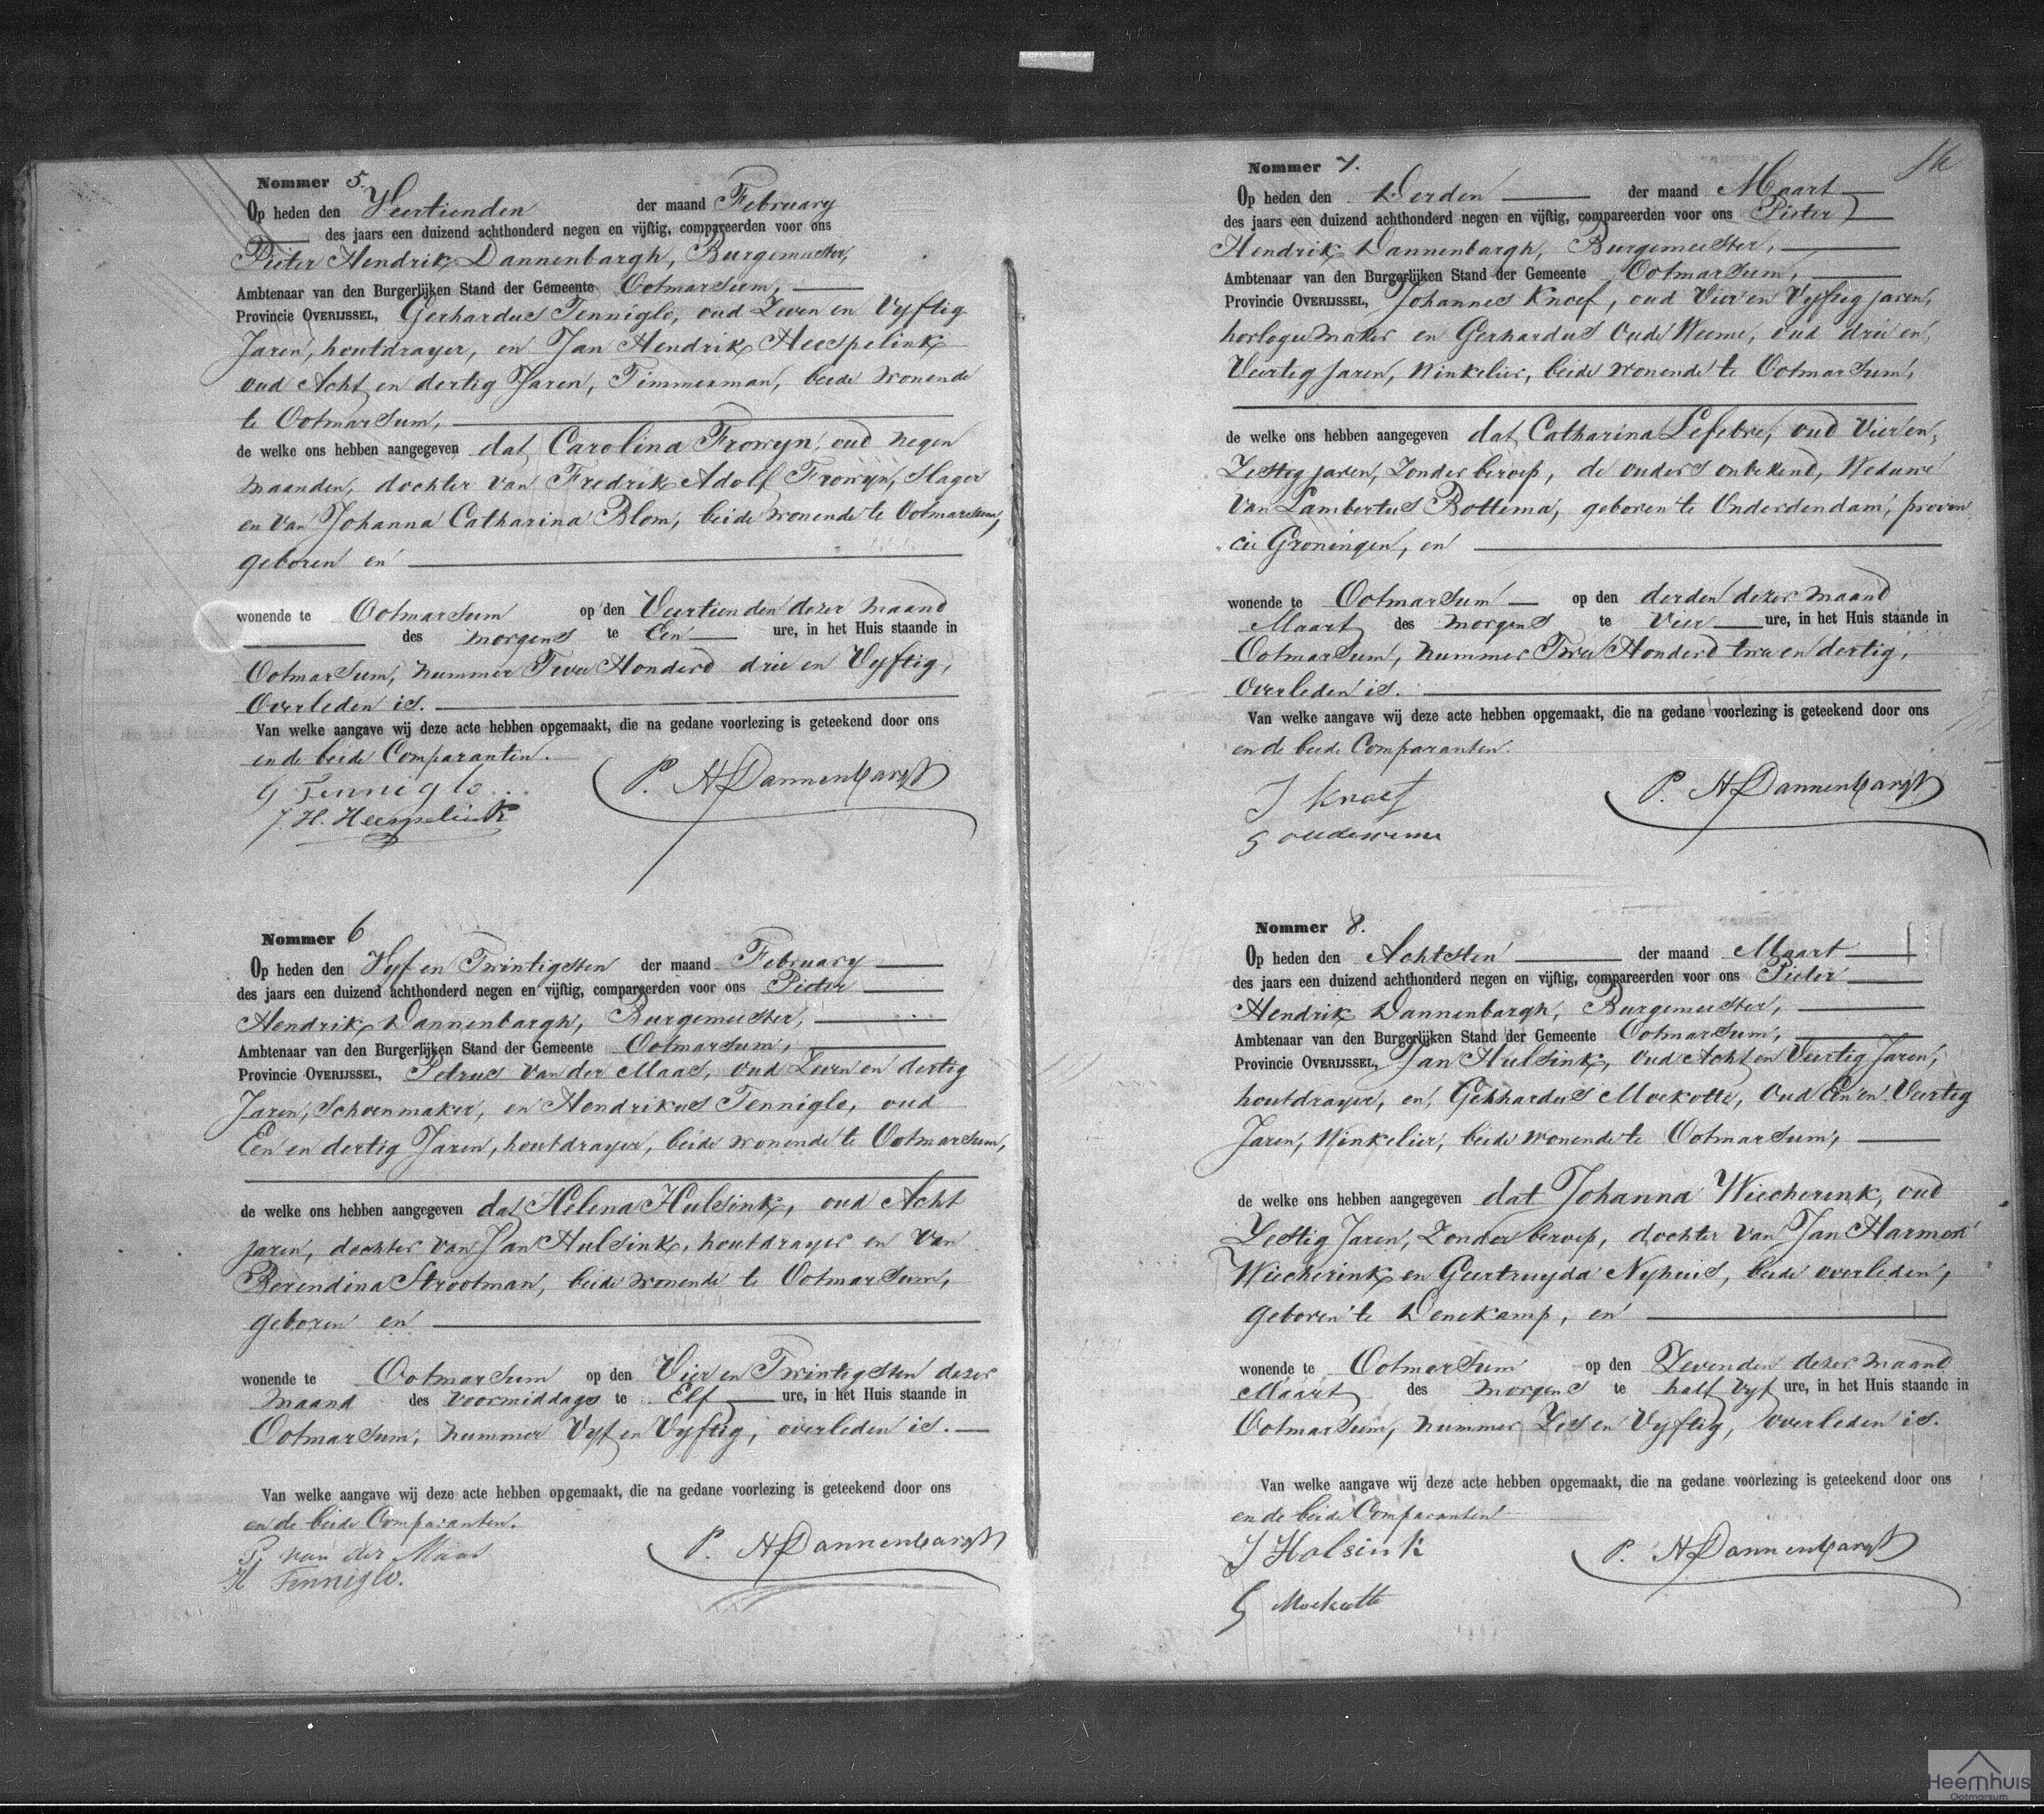 Nommer 5.
Op heden den Veertienden der maand February
des jaars een duizend achthonderd negen en vijftig, compareerden voor ons
Pieter Hendrik Dannenbargh, Burgemeester,
Ambtenaar van den Burgerlijken Stand der Gemeente Ootmarsum,
Provincie OVERIJSSEL, Gerhardus Tenniglo, oud Zeven en Vyftig
Jaren, houtdrayer, en Jan Hendrik Heespelink
oud Acht en dertig Jaren, Timmerman, beide wonende
te Ootmarsum,
de welke ons hebben aangegeven dat Carolina Frowyn, oud negen
maanden, dochter van Fredrik Adolf Frowyn, Slager
en van Johanna Catharina Blom, beide wonende te Ootmarsum,
geboren en
wonende te Ootmarsum op den Veertienden dezer maand
des morgens te Een ure, in het Huis staande in
Ootmarsum, nummer Twee Honderd drie en Vyftig,
overleden is.
Van welke aangave wij deze acte hebben opgemaakt, die na gedane voorlezing is geteekend door ons
en de beide Comparanten.
G Tenniglo
J. H. Heespelink
P. H Dannenbargh
Nommer 6
Op heden den Vyf en Twintigsten der maand February
des jaars een duizend achthonderd negen en vijftig, compareerden voor ons Pieter
Hendrik Dannenbargh, Burgemeester,
Ambtenaar van den Burgerlijken Stand der Gemeente Ootmarsum,
Provincie OVERIJSSEL, Petrus van der Maas, oud Zeven en dertig
Jaren, Schoenmaker, en Hendrikus Tenniglo, oud
Een en dertig Jaren, houtdrayer, beide wonende te Ootmarsum,
de welke ons hebben aangegeven dat Helena Hulsink, oud Acht
jaren, dochter van Jan Hulsink, houtdrayer en van
Berendina Strootman, beide wonende te Ootmarsum,
geboren en
wonende te Ootmarsum op den Vier en Twintigsten dezer
maand des voormiddags te Elf ure, in het Huis staande in
Ootmarsum, nummer Vyf en Vyftig, overleden is.
Van welke aangave wij deze acte hebben opgemaakt, die na gedane voorlezing is geteekend door ons
en de beide Comparanten.
P. van der Maas
H Tenniglo.
P. H Dannenbargh
Nommer 7.
Op heden den Derden der maand Maart
des jaars een duizend achthonderd negen en vijftig, compareerden voor ons Pieter
Hendrik Dannenbargh, Burgemeester,
Ambtenaar van den Burgerlijken Stand der Gemeente Ootmarsum,
Provincie OVERIJSSEL, Johannes Knoef, oud Vier en Vyftig jaren,
horlogiemaker en Gerhardus Oude Weeme, oud drie en
Veertig Jaren, Winkelier, beide wonende te Ootmarsum,
de welke ons hebben aangegeven dat Catharina Lefebre, oud Vier en
Zestig jaren, Zonder beroep, de ouders onbekend, Weduwe
van Lambertus Bottema, geboren te Onderdendam, proven
cie Groningen, en
wonende te Ootmarsum op den derden dezer maand
Maart des morgens te Vier ure, in het Huis staande in
Ootmarsum, nummer Twee Honderd twee en dertig,
overleden is.
Van welke aangave wij deze acte hebben opgemaakt, die na gedane voorlezing is geteekend door ons
en de beide Comparanten.
J Knoef
G oudeweme
P. H Dannenbargh
Nommer 8.
Op heden den Achtsten der maand Maart
des jaars een duizend achthonderd negen en vijftig, compareerden voor ons Pieter
Hendrik Dannenbargh, Burgemeester,
Ambtenaar van den Burgerlijken Stand der Gemeente Ootmarsum,
Provincie OVERIJSSEL, Jan Hulsink, oud Acht en Veertig Jaren,
houtdrayer, en, Gerhardus Moekotte, oud Een en Veertig
Jaren, Winkelier, beide wonende te Ootmarsum,
de welke ons hebben aangegeven dat Johanna Wiecherink, oud
Zestig Jaren, Zonder beroep, dochter van Jan Harmen
Wiecherink en Geertruyda Nyhuis, beide overleden,
geboren te Denekamp, en
wonende te Ootmarsum op den Zevenden dezer maand
Maart des morgens te half vyf ure, in het Huis staande in
Ootmarsum, nummer Zes en Vyftig, overleden is.
Van welke aangave wij deze acte hebben opgemaakt, die na gedane voorlezing is geteekend door ons
en de beide Comparanten
J Holsink
G Moekotte
P. H Dannenbargh
Heemhuis
Ootmarsum